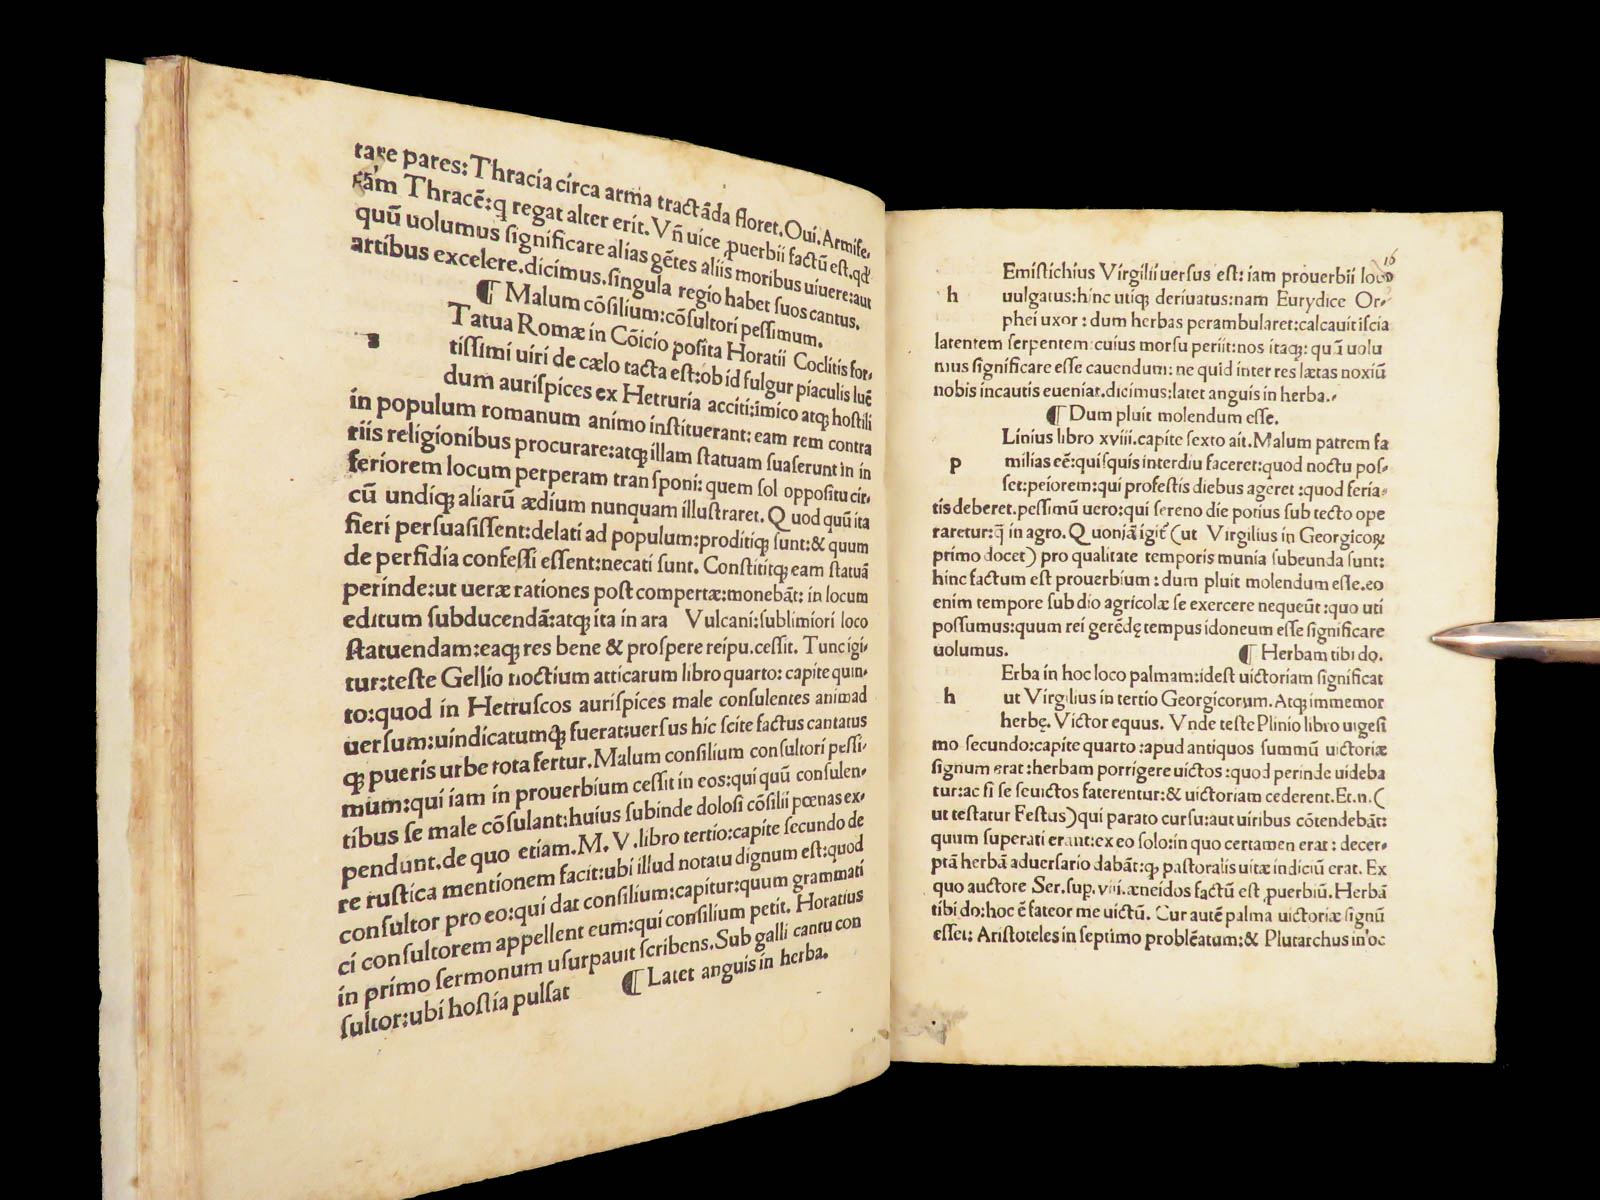 tare pares: Thracia circa arma tractãda floret. Oui. Armife,
rãm Thracẽ: ꝗ regat alter erit. Vñ uice ꝓuerbii factũ est. qđ
quũ uolumus significare alias gẽtes aliis moribus uiuere: aut
artibus excelere. dicimus. singula regio habet suos cantus.
¶ Malum cõsilium: cõsultori pessimum.
s
Tatua Romæ in Cõicio posita Horatii Coclitis for,
tissimi uiri de cælo tacta est: ob id fulgur piaculis luẽ
dum aurispices ex Hetruria acciti: ĩmico atqꝫ hostili
in populum romanum animo instituerant: eam rem contra
riis religionibus procurare: atqꝫ illam statuam suaserunt in in
feriorem locum perperam transponi: quem sol oppositu cir,
cũ undiqꝫ aliarũ ædium nunquam illustraret. Quod quũ ita
fieri persuasissent: delati ad populum: proditiqꝫ sunt: & quum
de perfidia confessi essent: necati sunt. Constititqꝫ eam statuã
perinde: ut ueræ rationes post compertæ: monebãt: in locum
editum subducendã: atqꝫ ita in ara Vulcani: sublimiori loco
statuendam: eaqꝫ res bene & prospere reipu. cessit. Tunc igi,
tur: teste Gellio noctium atticarum libro quarto: capite quin,
to: quod in Hetruscos aurispices male consulentes animad
uersum: uindicatumqꝫ fuerat: uersus hic scite factus cantatus
qꝫ pueris urbe tota fertur. Malum consilium consultori pessi,
mum: qui iam in prouerbium cessit in eos: qui quũ consulen,
tibus se male cõsulant: huius subinde dolosi cõsilii pœnas ex,
pendunt. de quo etiam. M. V. libro tertio: capite secundo de
re rustica mentionem facit: ubi illud notatu dignum est: quod
consultor pro eo: qui dat consilium: capitur: quum grammati
ci consultorem appellent eum: qui consilium petit. Horatius
in primo sermonum usurpauit scribens. Sub galli cantu con
sultor: ubi hostia pulsat ¶ Latet anguis in herba.
16
Emistichius Virgilii uersus est: iam prouerbii loco
h
uulgatus: hinc utiqꝫ deriuatus: nam Eurydice Or,
phei uxor: dum herbas perambularet: calcauit iscia
latentem serpentem: cuius morsu periit: nos itaqꝫ: quũ uolu
mus significare esse cauendum: ne quid inter res lætas noxiũ
nobis incautis eueniat. dicimus: latet anguis in herba.
¶ Dum pluit molendum esse.
Linius libro xviii. capite sexto ait. Malum patrem fa
p
milias eẽ: quisquis interdiu faceret: quod noctu pos,
set: peiorem: qui profestis diebus ageret: quod feria,
tis deberet. pessimũ uero: qui sereno die potius sub tecto ope
raretur: ꝗ̃ in agro. Quoniã igit̃ (ut Virgilius in Georgicoꝝ
primo docet) pro qualitate temporis munia subeunda sunt:
hinc factum est prouerbium: dum pluit molendum esse. eo
enim tempore sub dio agricolæ se exercere nequeũt: quo uti
possumus: quum rei gerẽdę tempus idoneum esse significare
uolumus. ¶ Herbam tibi do.
Erba in hoc loco palmam: idest uictoriam significat
h
ut Virgilius in tertio Georgicorum. Atqꝫ immemor
herbę. Victor equus. Vnde teste Plinio libro uigesi
mo secundo: capite quarto: apud antiquos summũ uictoriæ
signum erat: herbam porrigere uictos: quod perinde uideba
tur: ac si se seuictos faterentur: & uictoriam cederent. Et. n. (
ut testatur Festus) qui parato cursu: aut uiribus cõtendebãt:
quum superati erant: ex eo solo: in quo certamen erat: decer,
ptã herbã aduersario dabãt: qꝫ pastoralis uitæ indiciũ erat. Ex
quo auctore Ser. sup. viii. æneidos factũ est ꝓuerbiũ. Herbã
tibi do: hoc ẽ fateor me uictũ. Cur autẽ palma uictoriæ signũ
esset: Aristoteles in septimo problẽatum: & Plutarchus in oc